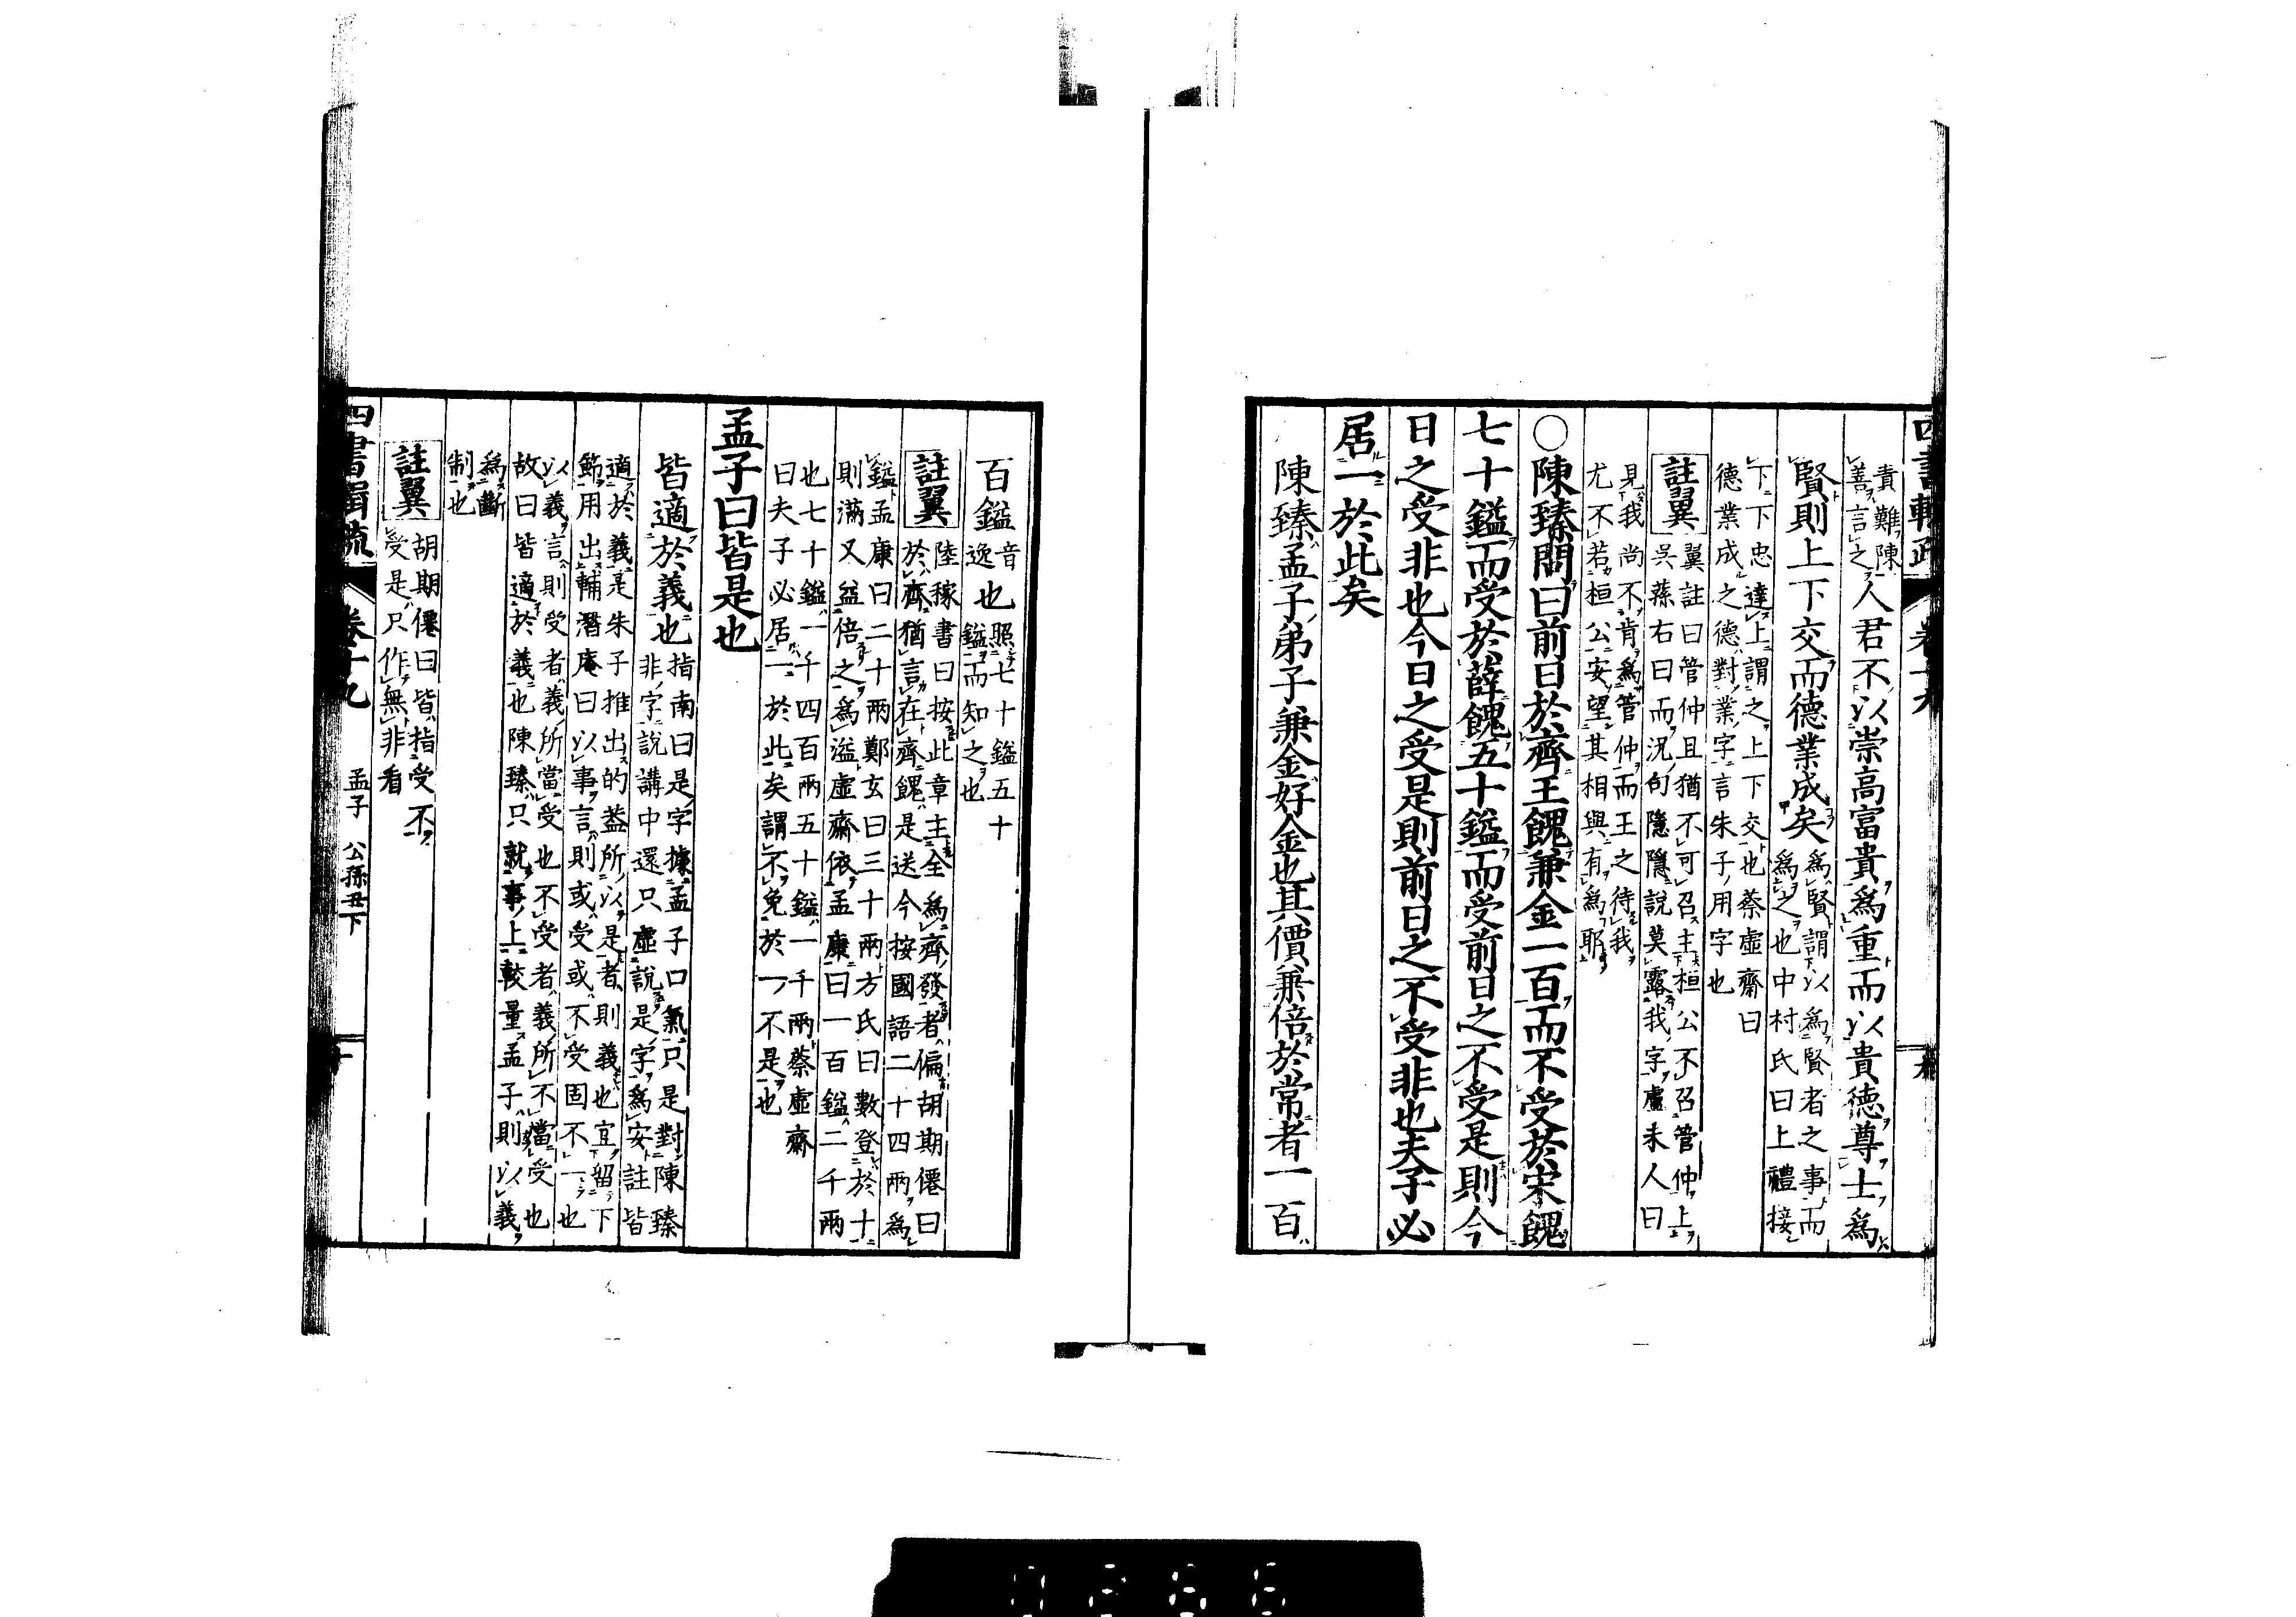 四書輯疏 卷十九
責難陳
善言之人君不以崇高富貴爲重而以貴德尊士爲
賢則上下交而德業成矣爲賢謂以爲賢者之事而
爲之也中村氏曰上禮接
下下忠達上謂之上下交也蔡虛齋曰
德業成之德對業字言朱子用字也
註翼翼註曰管仲且猶不可召主桓公不召管仲上
吳蓀右曰而況句隱隱說莫露我字慮未人曰
見我尚不肯爲管仲而王之待我
尤不若桓公安望其相與有爲耶
○陳臻問曰前日於齊王餽兼金一百而不受於宋餽
七十鎰而受於薛餽五十鎰而受前日之不受是則今
日之受非也今日之受是則前日之不受非也夫子必
居一於此矣
陳臻孟子弟子兼金好金也其價兼倍於常者一百
百鎰音逸也照七十鎰五十
鎰而知之也
註翼陸稼書曰按此章主全爲齊發者偏胡期僊曰
於齊猶言在齊餽是送今按國語二十四兩爲
鎰孟康曰二十兩鄭玄曰三十兩方氏曰數登於十
則滿又益倍之爲溢虛齋依孟康曰一百鎰二千兩
也七十鎰一千四百兩五十鎰一千兩蔡虛齋
曰夫子必居一於此矣謂不免於一不是也
孟子曰皆是也
皆適於義也指南曰是字據孟子口氣只是對陳臻
非字說講中還只虛說是字爲安註皆
適於義是朱子推出的葢所以是者則義也宜留下
節用出輔潛庵曰以事言則或受或不受固不一也
以義言則受者義所當受也不受者義所不當受也
故曰皆適於義也陳臻只就事上較量孟子則以義
爲斷
制也
註翼胡期僊曰皆指受不
受是只作無非看
四書輯疏 卷十九 孟子 公孫丑下